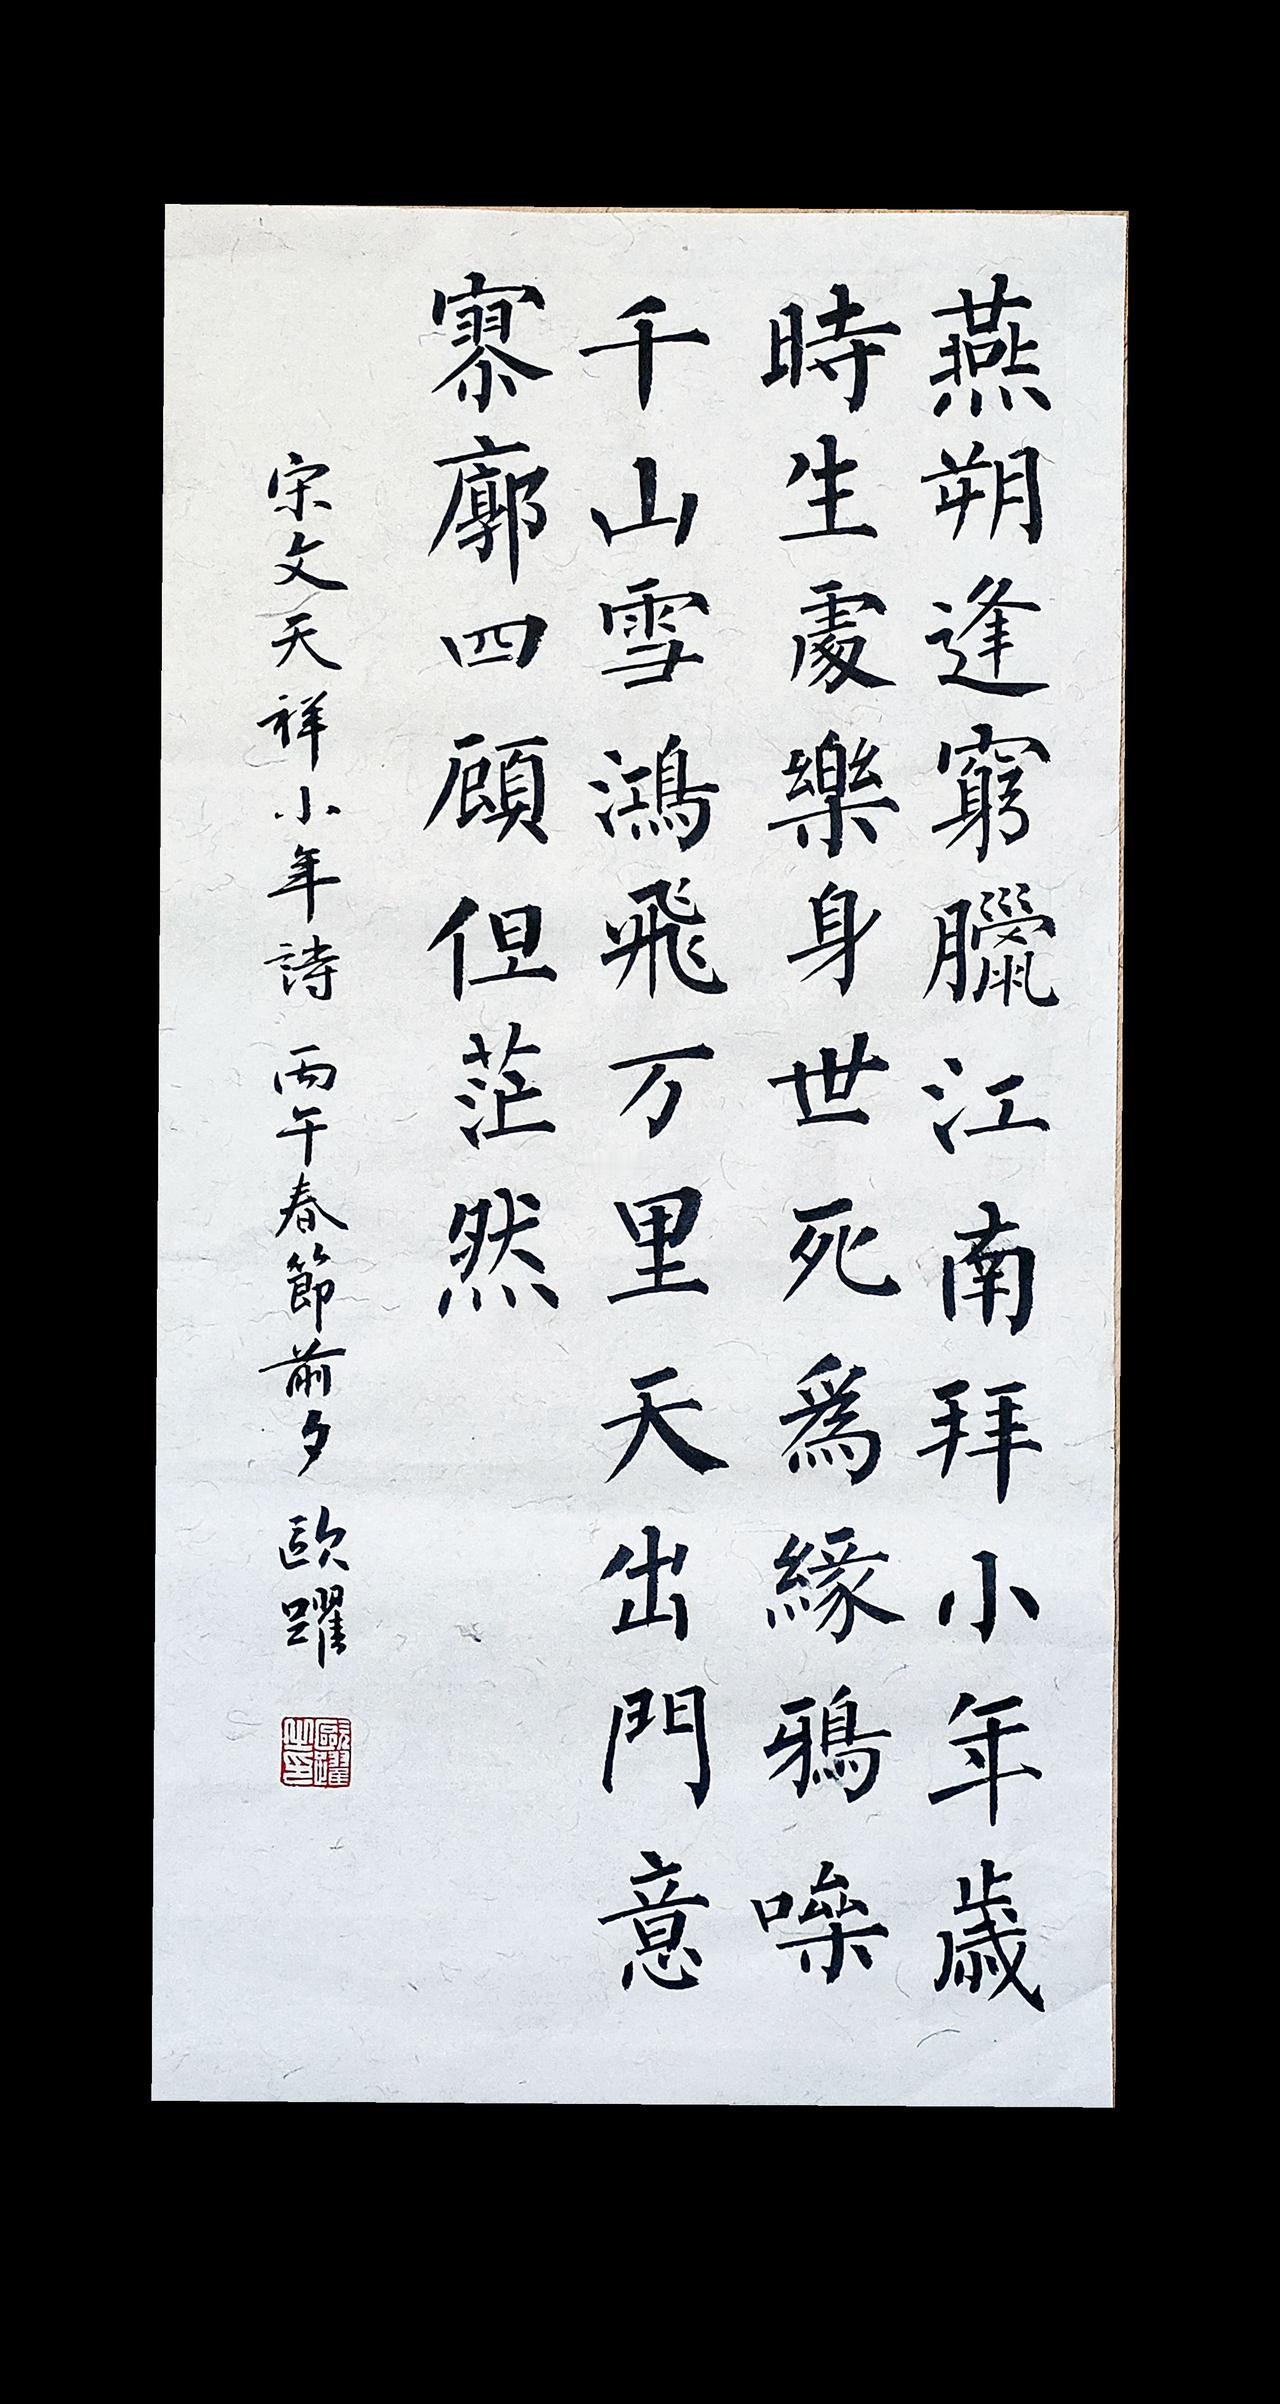 燕朔逢窮臘江南拜小年歲
時生處樂身世死爲緣鴉噪
千山雪鴻飛万里天出門意
寥廓四顧但茫然
宋文天祥小年詩 丙午春節前夕 歐躍
歐躍之印